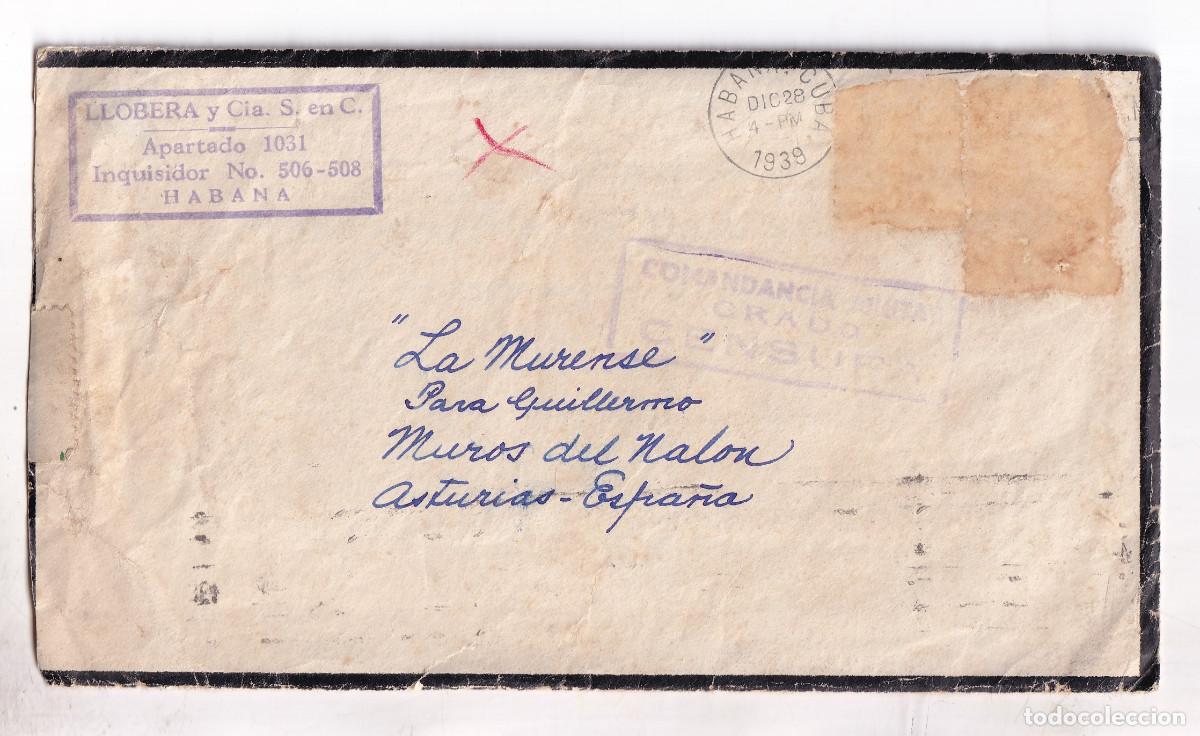 LLOBERA y Cia. S. en C.
Apartado 1031
Inquisidor No. 506-508
HABANA
HABANA. CUBA
DIC 28
4-PM
1939
COMANDANCIA MILITAR
GRADO
CENSURA
"La Murense"
Para Guillermo
Muros del Nalon
Asturias-España
todocoleccion